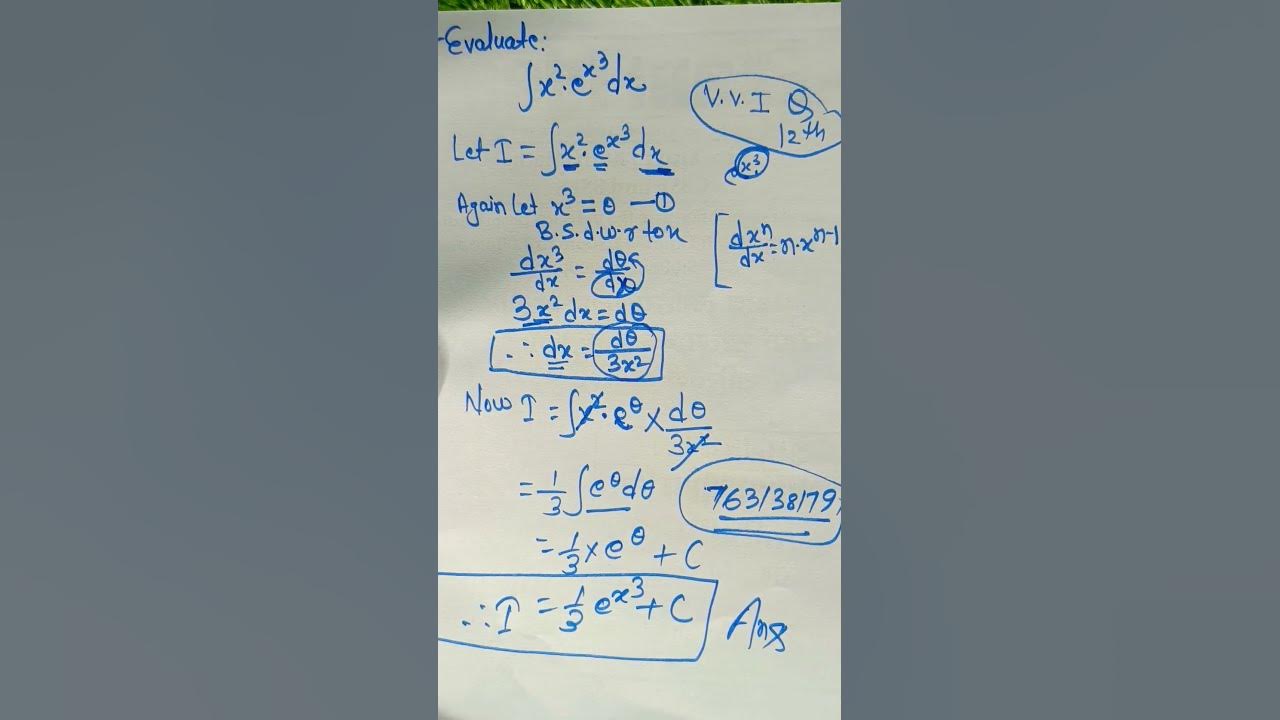 Evaluate:
∫x²·e^x³ dx
V.V.I Q
12th
Let I = ∫x²·e^x³ dx
e^x³
Again Let x³ = θ —①
B.S.d.w.r to x
dx³/dx = dθ/dx
[dxⁿ/dx = n·xⁿ⁻¹
3x² dx = dθ
∴ dx = dθ/3x²
Now I = ∫x²·e^θ × dθ/3x²
= 1/3 ∫e^θ dθ
763138179
= 1/3 × e^θ + C
∴ I = 1/3 e^x³ + C
Ans